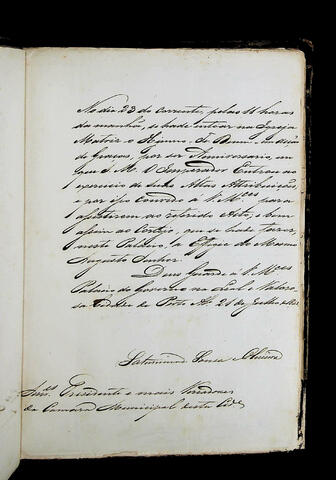 No dia 23 do corrente, pelas 11 horas
da manhã, se hade entoar na Igreja
Matriz o Hymno, Te Deum, em acção
de Graças, por ser Anniversario, em
que S. M. O Imperador Entrou no
exercicio de Suas Altas Attribuições,
e por isso convido a V. M.ces para
assistirem ao referido Acto, e bem
assim ao Cortejo, que se hade fazer,
neste Palacio, a Effigie do Mesmo
Augusto Senhor.
Deus Guarde a V. M.ces
Palacio do Governo na Leal e Valoro-
sa Cidade de Porto Al. 21 de Julho de
Saturnino Souza e Oliveira
Snr.es Presidente e mais Vereadores
da Camara Municipal desta Cid.e